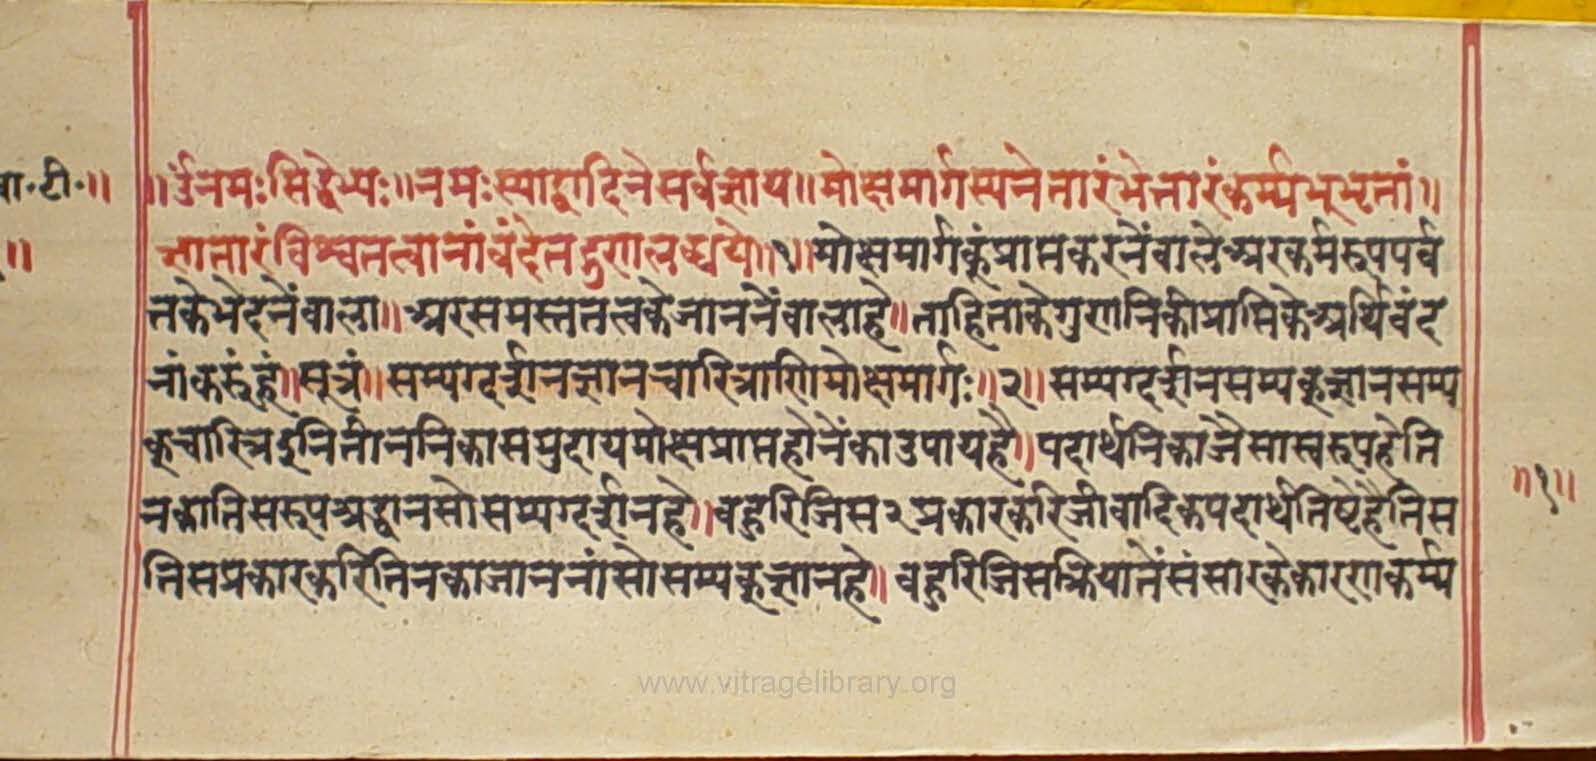 वा॰टी॰॥
॥ॐनमःसिद्धेभ्यः॥नमःस्याद्वादिनेसर्वज्ञाय॥मोक्षमार्गस्यनेतारंभेत्तारंकर्म्मभूभृतां॥
ज्ञातारंविश्वतत्वानांवंदेतद्गुणलब्धये॥१॥मोक्षमार्गकूंप्राप्तकरनेंवालेअरकर्मरूपपर्व
तकेभेदनेंवाला॥अरसमस्ततत्वकेजाननेंवालाहे॥ताहिताकेगुणनिकीप्राप्तिकेअर्थिवंद
नांकरूंहूं॥सूत्रं॥सम्यग्दर्शनज्ञानचारित्राणिमोक्षमार्गः॥२॥सम्यग्दर्शनसम्यक्ज्ञानसम्य
क्चारित्रइनितीननिकासमुदायमोक्षप्राप्तहोनेंकाउपायहै॥पदार्थनिकाजैसास्वरूपहेति
नकातिसरूपश्रद्धानसोसम्यग्दर्शनहे॥बहुरिजिस२प्रकारकरिजीवादिकपदार्थतिष्टेहैतिस
तिसप्रकारकरितिनकाजाननांसोसम्यक्ज्ञानहे॥बहुरिजिसक्रियातेंसंसारकेकारणकर्म्म
॥१॥
www.vitragelibrary.org